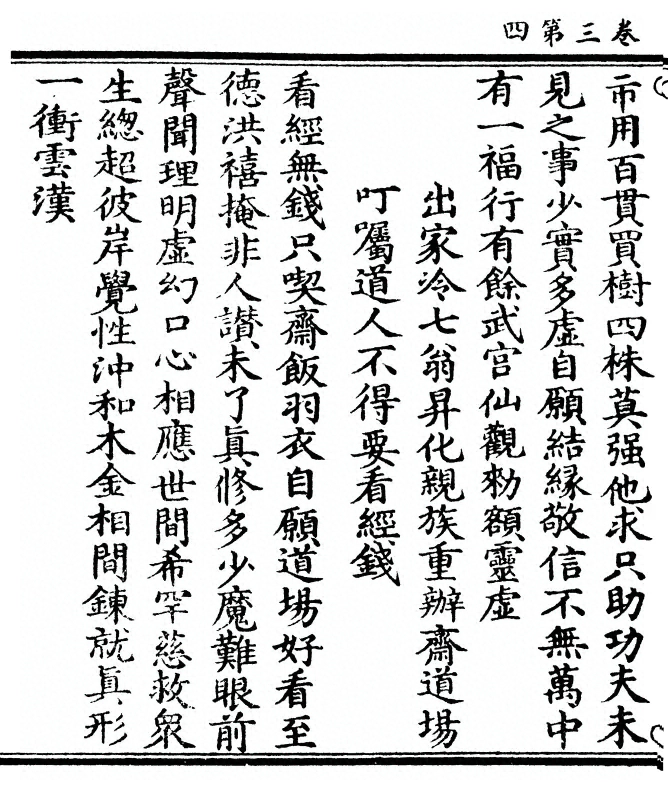 卷三第四
帀用百貫買樹四株莫强他求只助功夫未
見之事少實多虛自願結緣敬信不無萬中
有一福行有餘武官仙觀勑額靈虛
出家冷七翁昇化親族重辦齋道場
叮囑道人不得要看經錢
看經無錢只喫齋飯羽衣自願道場好看至
德洪禧掩非人讃未了眞修多少魔難眼前
聲聞理明虛幻口心相應世間希罕慈救衆
生緫超彼岸覺性沖和木金相間鍊就眞形
一衝雲漢